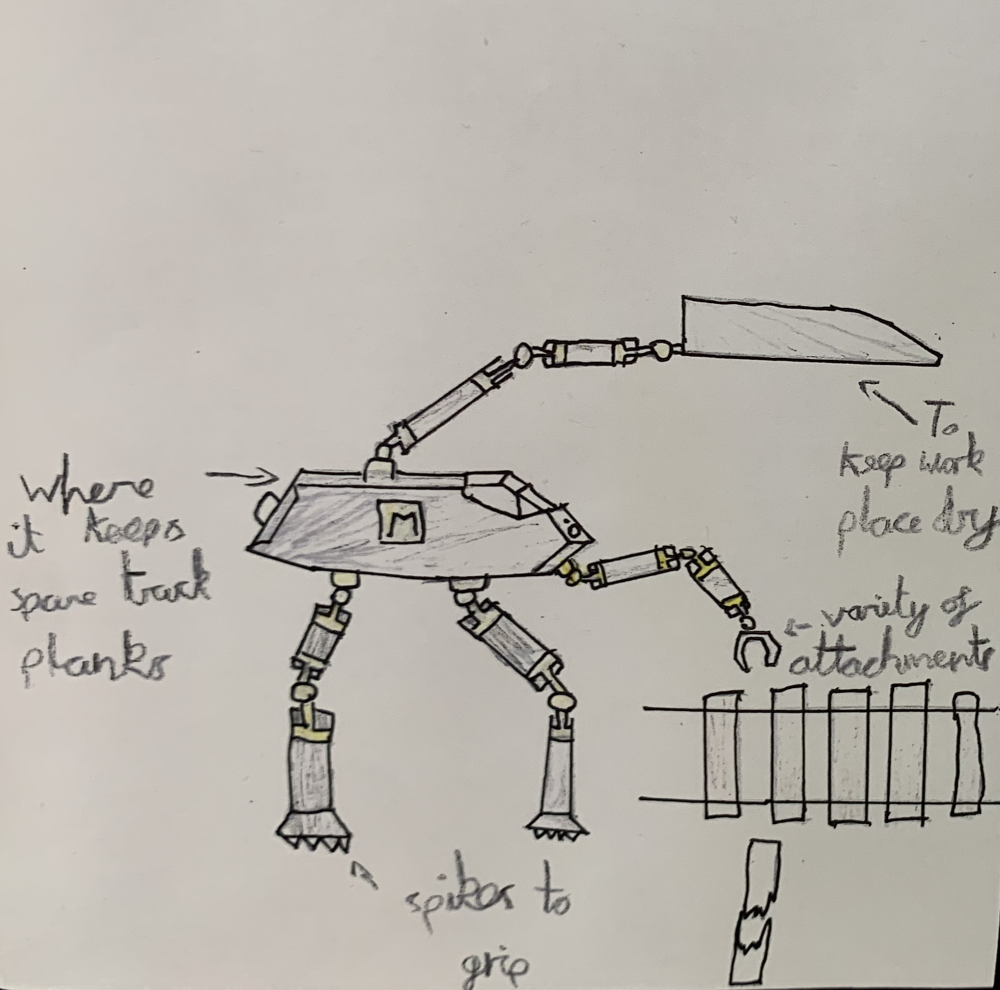 To
keep work
place dry
where
it keeps
spare track
planks
M
variety of
attachments
spikes to
grip